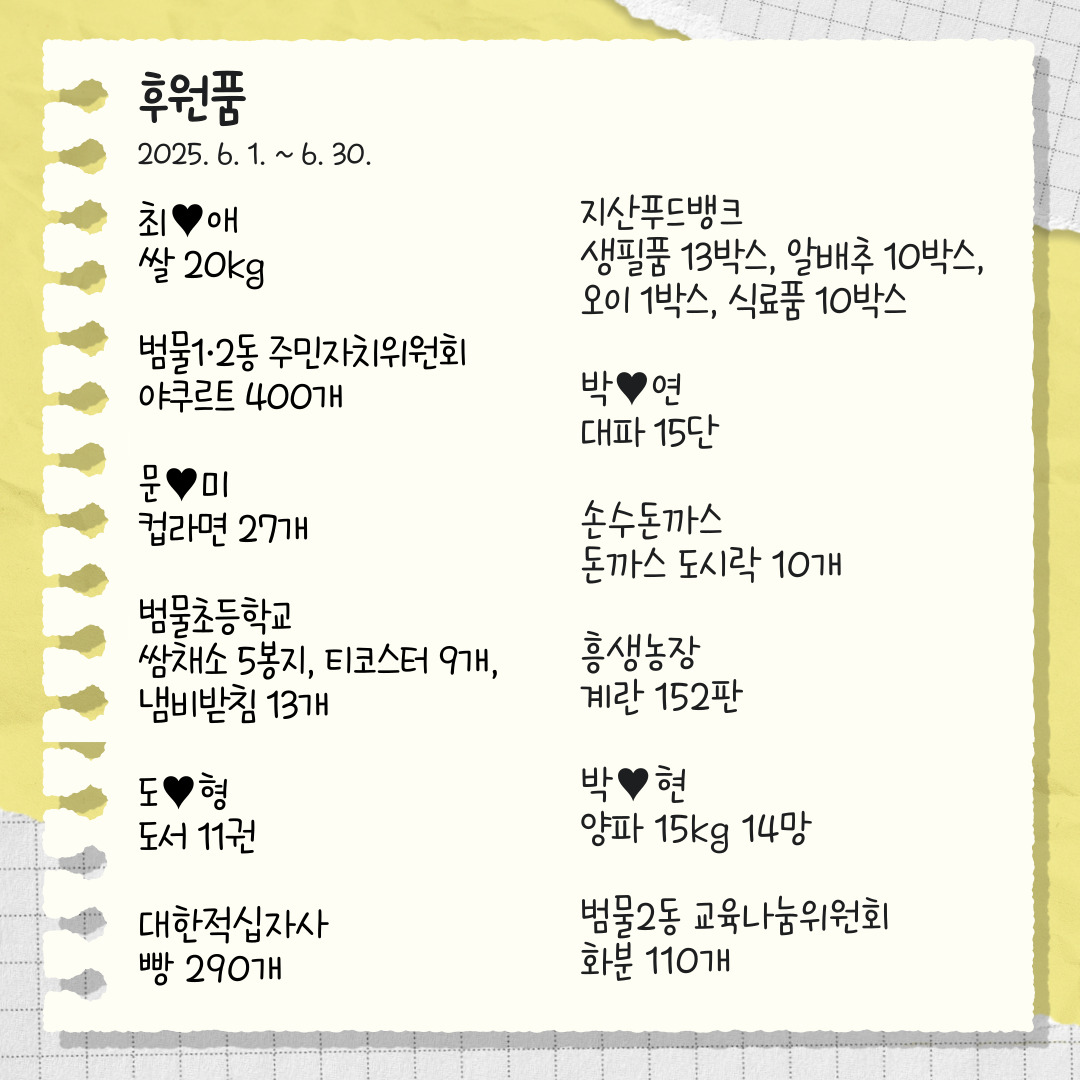 후원품
2025. 6. 1. ~ 6. 30.
최♥애
쌀 20kg
범물1·2동 주민자치위원회
야쿠르트 400개
문♥미
컵라면 27개
범물초등학교
쌈채소 5봉지, 티코스터 9개,
냄비받침 13개
도♥형
도서 11권
대한적십자사
빵 290개
지산푸드뱅크
생필품 13박스, 알배추 10박스,
오이 1박스, 식료품 10박스
박♥연
대파 15단
손수돈까스
돈까스 도시락 10개
흥생농장
계란 152판
박♥현
양파 15kg 14망
범물2동 교육나눔위원회
화분 110개